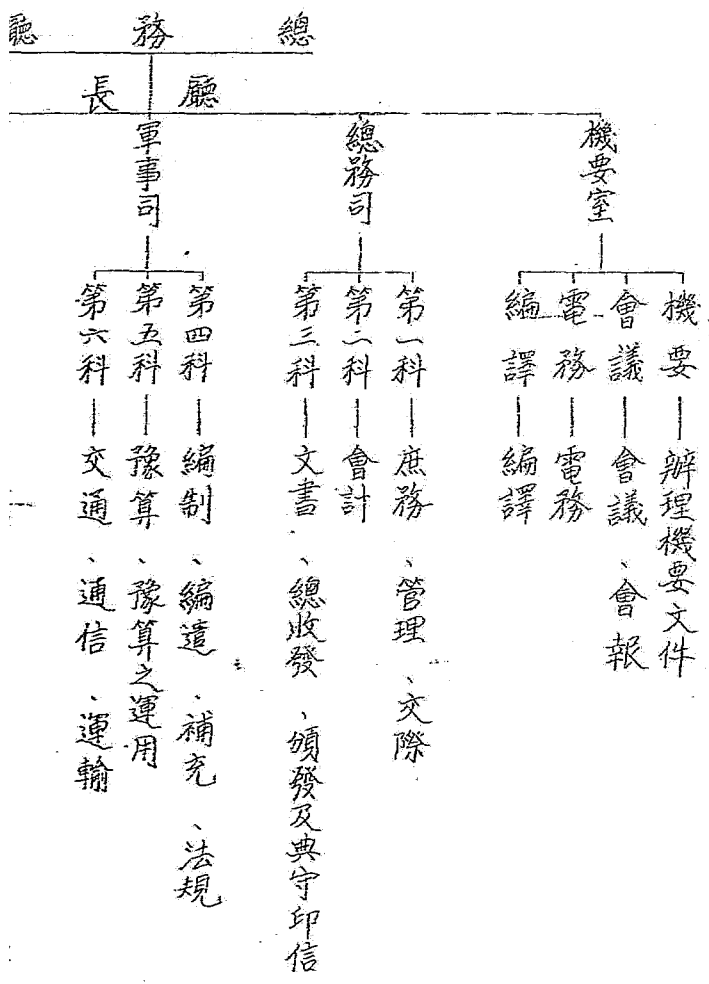 總務廳
廳長
機要室
機要 辦理機要文件
會議 會議、會報
電務 電務
編譯 編譯
總務司
第一科 庶務、管理、交際
第二科 會計
第三科 文書、總收發、頒發及典守印信
軍事司
第四科 編制、編遣、補充、法規
第五科 豫算、豫算之運用
第六科 交通、通信、運輸